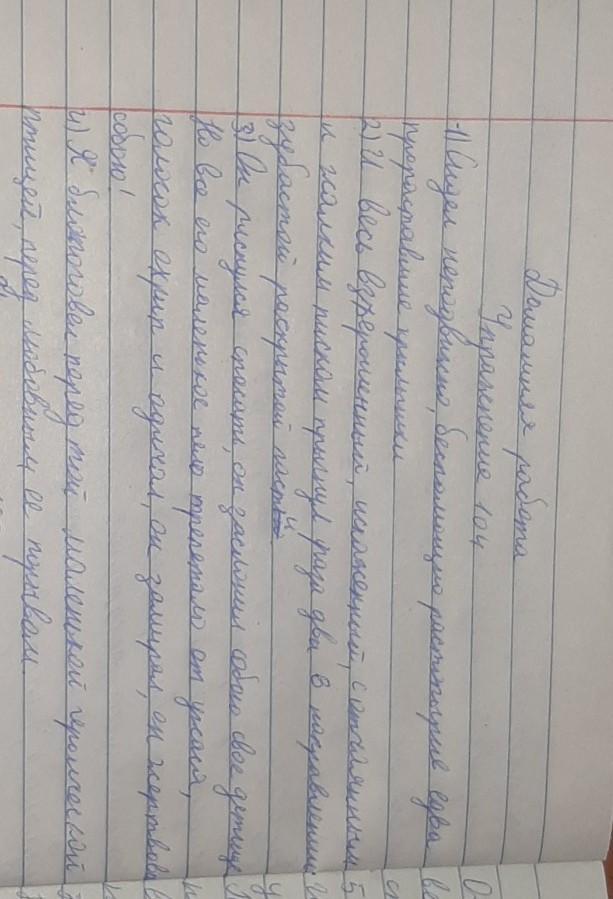 Домашняя работа
Упражнение 104
1) Сидел неподвижно, беспомощно растопырив едва
прораставшие крылышки
2) И весь взъерошенный, искаженный, с отчаянным
и жалким писком прыгнул раза два в направлении
зубастой раскрытой пасти
3) Он ринулся спасать, он заслонил собою свое детище
Но все его маленькое тело трепетало от ужаса,
голосок охрип и одичал, он замирал, он жертвовал
собою!
4) Я благоговел перед той маленькой героической
птицей, перед любовным ее порывом.